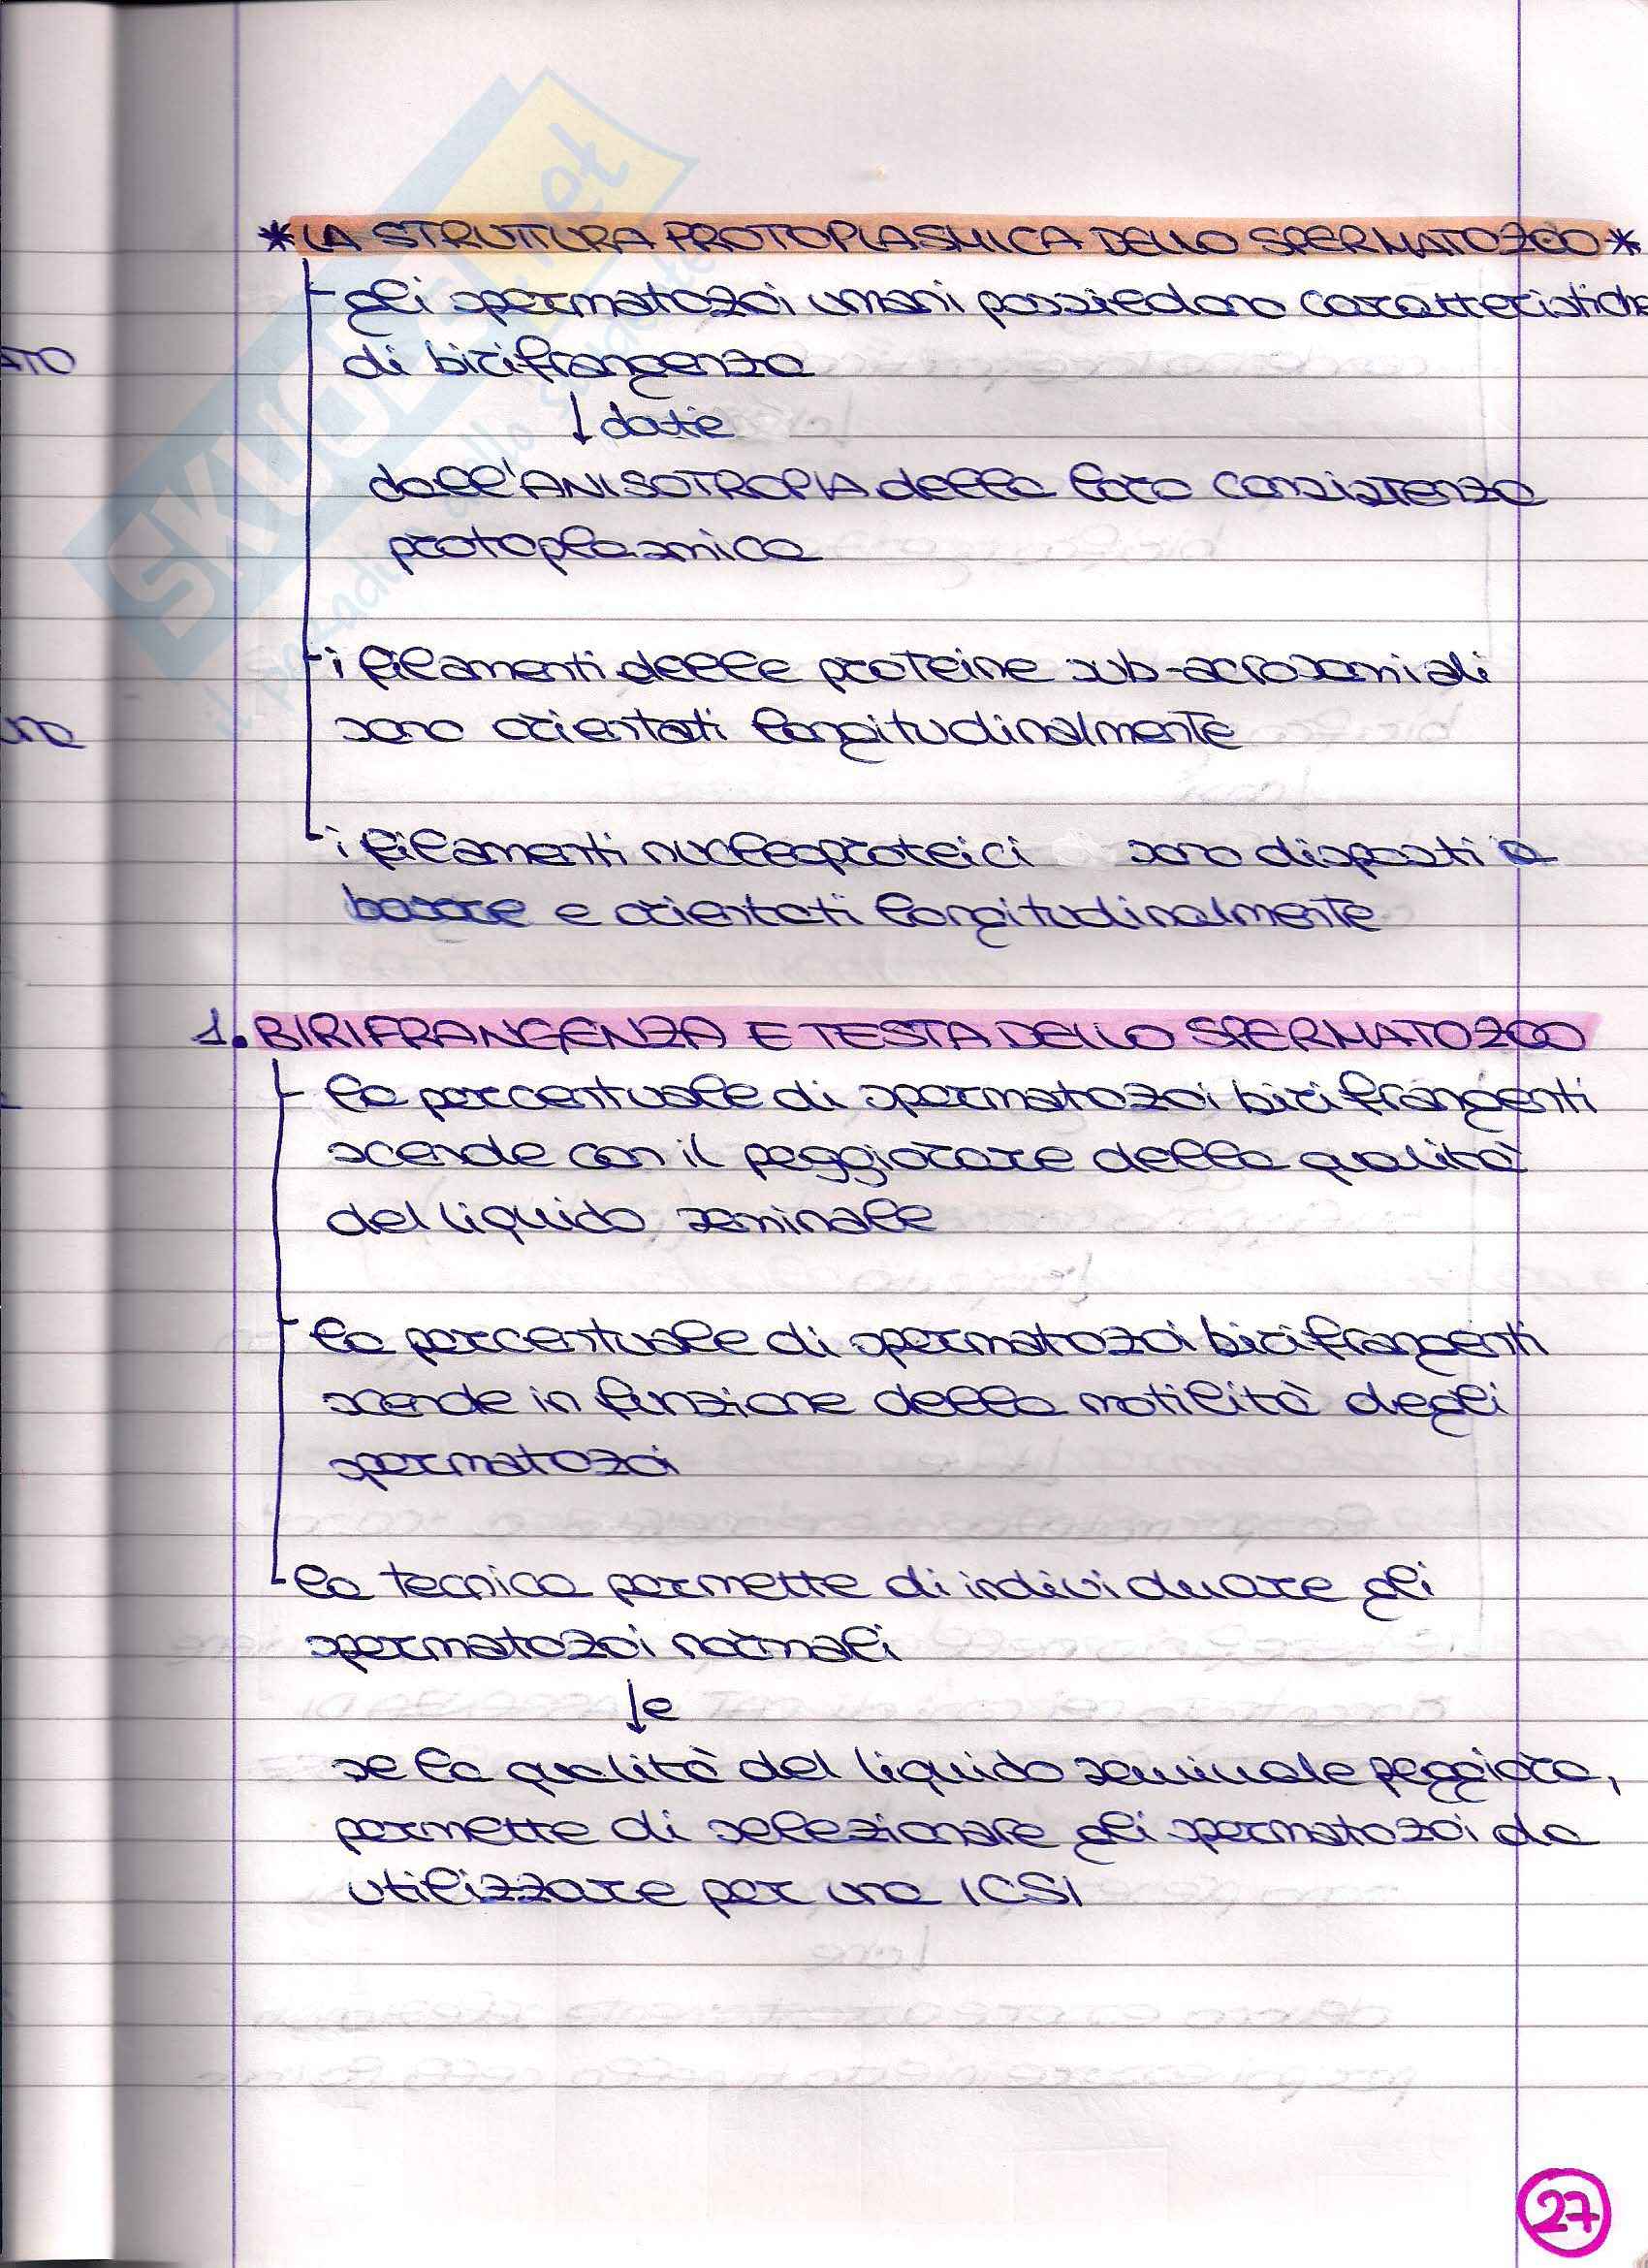 ATO
* LA STRUTTURA PROTOPLASMICA DELLO SPERMATOZOO *
gli spermatozoi umani possiedono caratteristiche
di birifrangenza
↓ date
dall'ANISOTROPIA della loro consistenza
protoplasmica
i filamenti delle proteine sub-acrosomiali
sono orientati longitudinalmente
i filamenti nucleoproteici sono disposti a
e orientati longitudinalmente
1. BIRIFRANGENZA E TESTA DELLO SPERMATOZOO
la percentuale di spermatozoi birifrangenti
scende con il peggiorare della qualità
del liquido seminale
la percentuale di spermatozoi birifrangenti
scende in funzione della motilità degli
spermatozoi
la tecnica permette di individuare gli
spermatozoi normali
↓ e
se la qualità del liquido seminale peggiora,
permette di selezionare gli spermatozoi da
utilizzare per una ICSI
27
SKUOLA.net